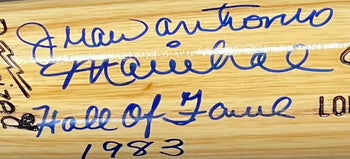 Juan Antonio
Marichal
Hall Of Fame
LO
1983